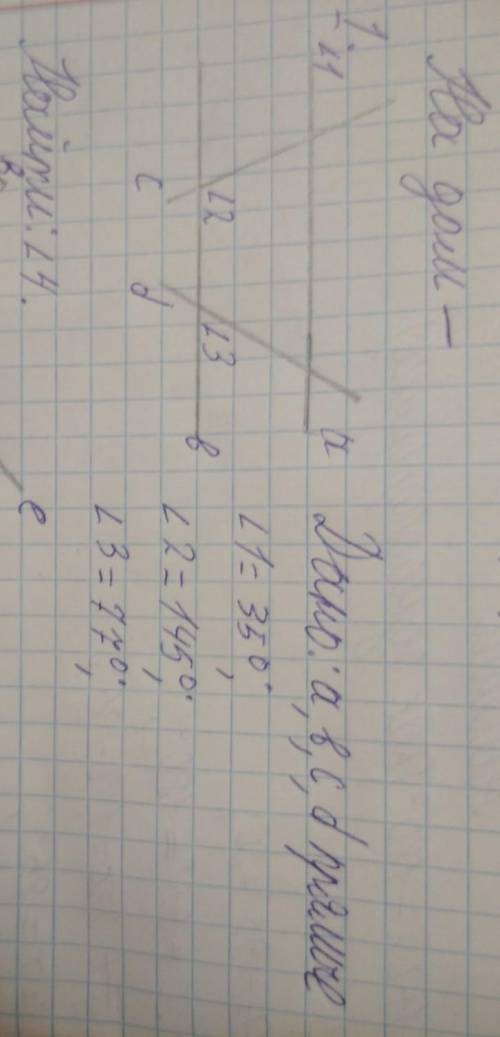 На дом —
1.
∠1
a
∠2
∠3
c
d
в
Дано: a, в, c, d прямые
∠1 = 35°;
∠2 = 145°;
∠3 = 77°;
Найти: ∠4.
e